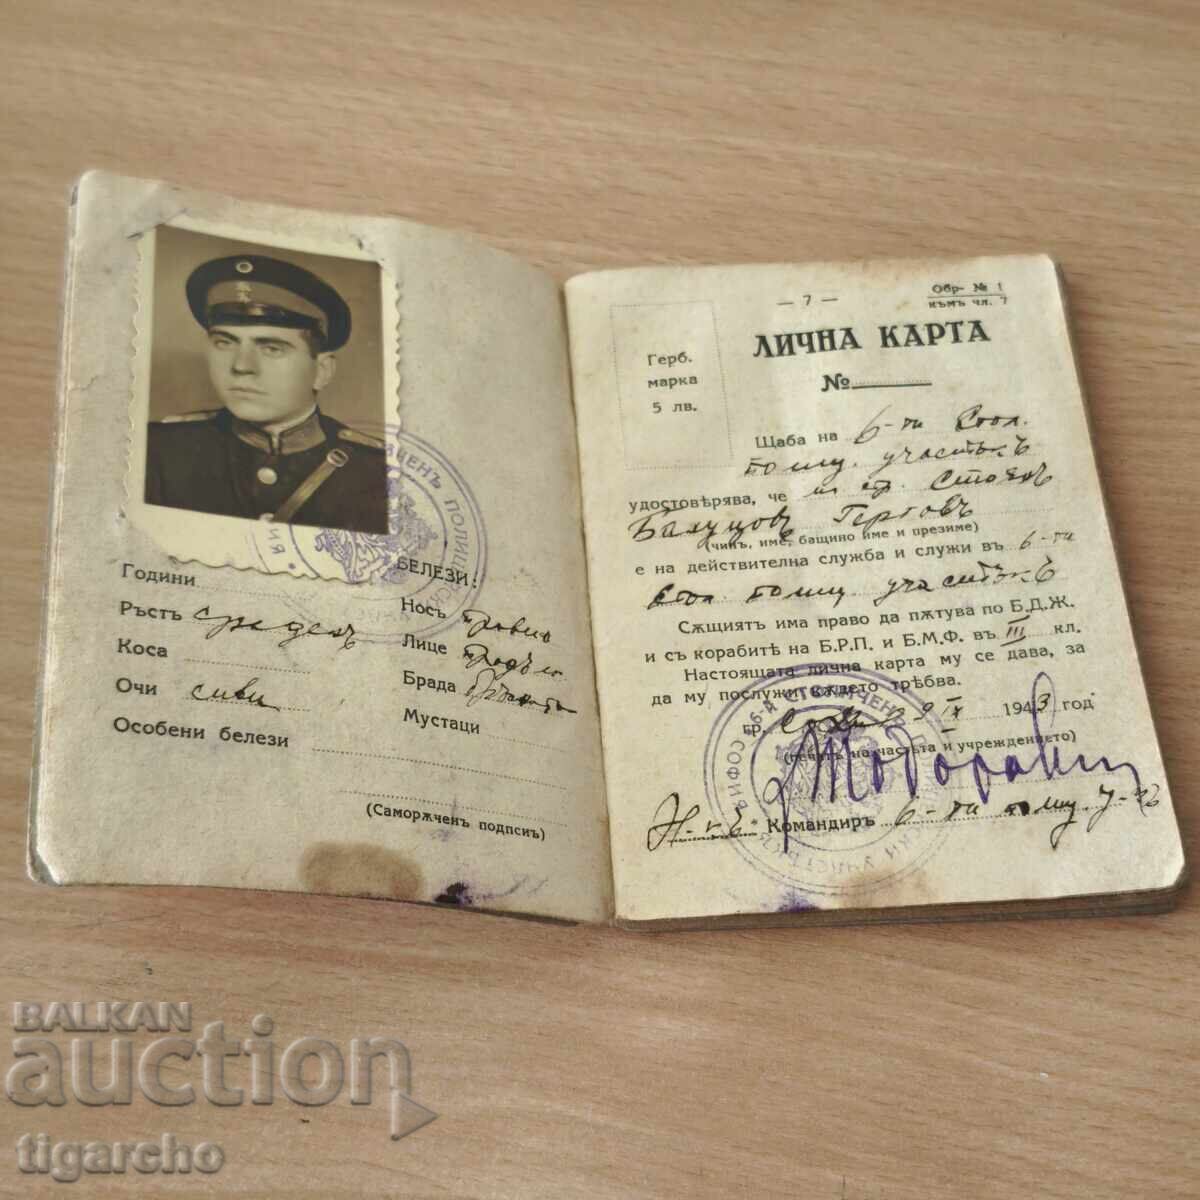 Години
Ръстъ срѣденъ
Коса
Очи сиви
Особени белези
БЕЛЕЗИ:
Носъ правиленъ
Лице
Брада
Мустаци
(Саморѫченъ подписъ)
— 7 —
Обр- № 1
къмъ чл. 7
Герб.
марка
5 лв.
ЛИЧНА КАРТА
№
Щаба на 6-ти Стол.
полиц. участъкъ
удостовѣрява, че ст. Стоянъ
Георговъ
(чинъ, име, бащино име и презиме)
е на действителна служба и служи въ 6-ти
Стол. полиц. участъкъ
Сѫщиятъ има право да пѫтува по Б.Д.Ж.
и съ корабитѣ на Б.Р.П. и Б.М.Ф. въ III кл.
Настоящата лична карта му се дава, за
да му послужи каждето трѣбва.
гр. София 9 IX 1943 год
(печатъ на частьта и учреждението)
Н-къ Командиръ 6-ти полиц. у-къ
BALKAN
auction
tigarcho